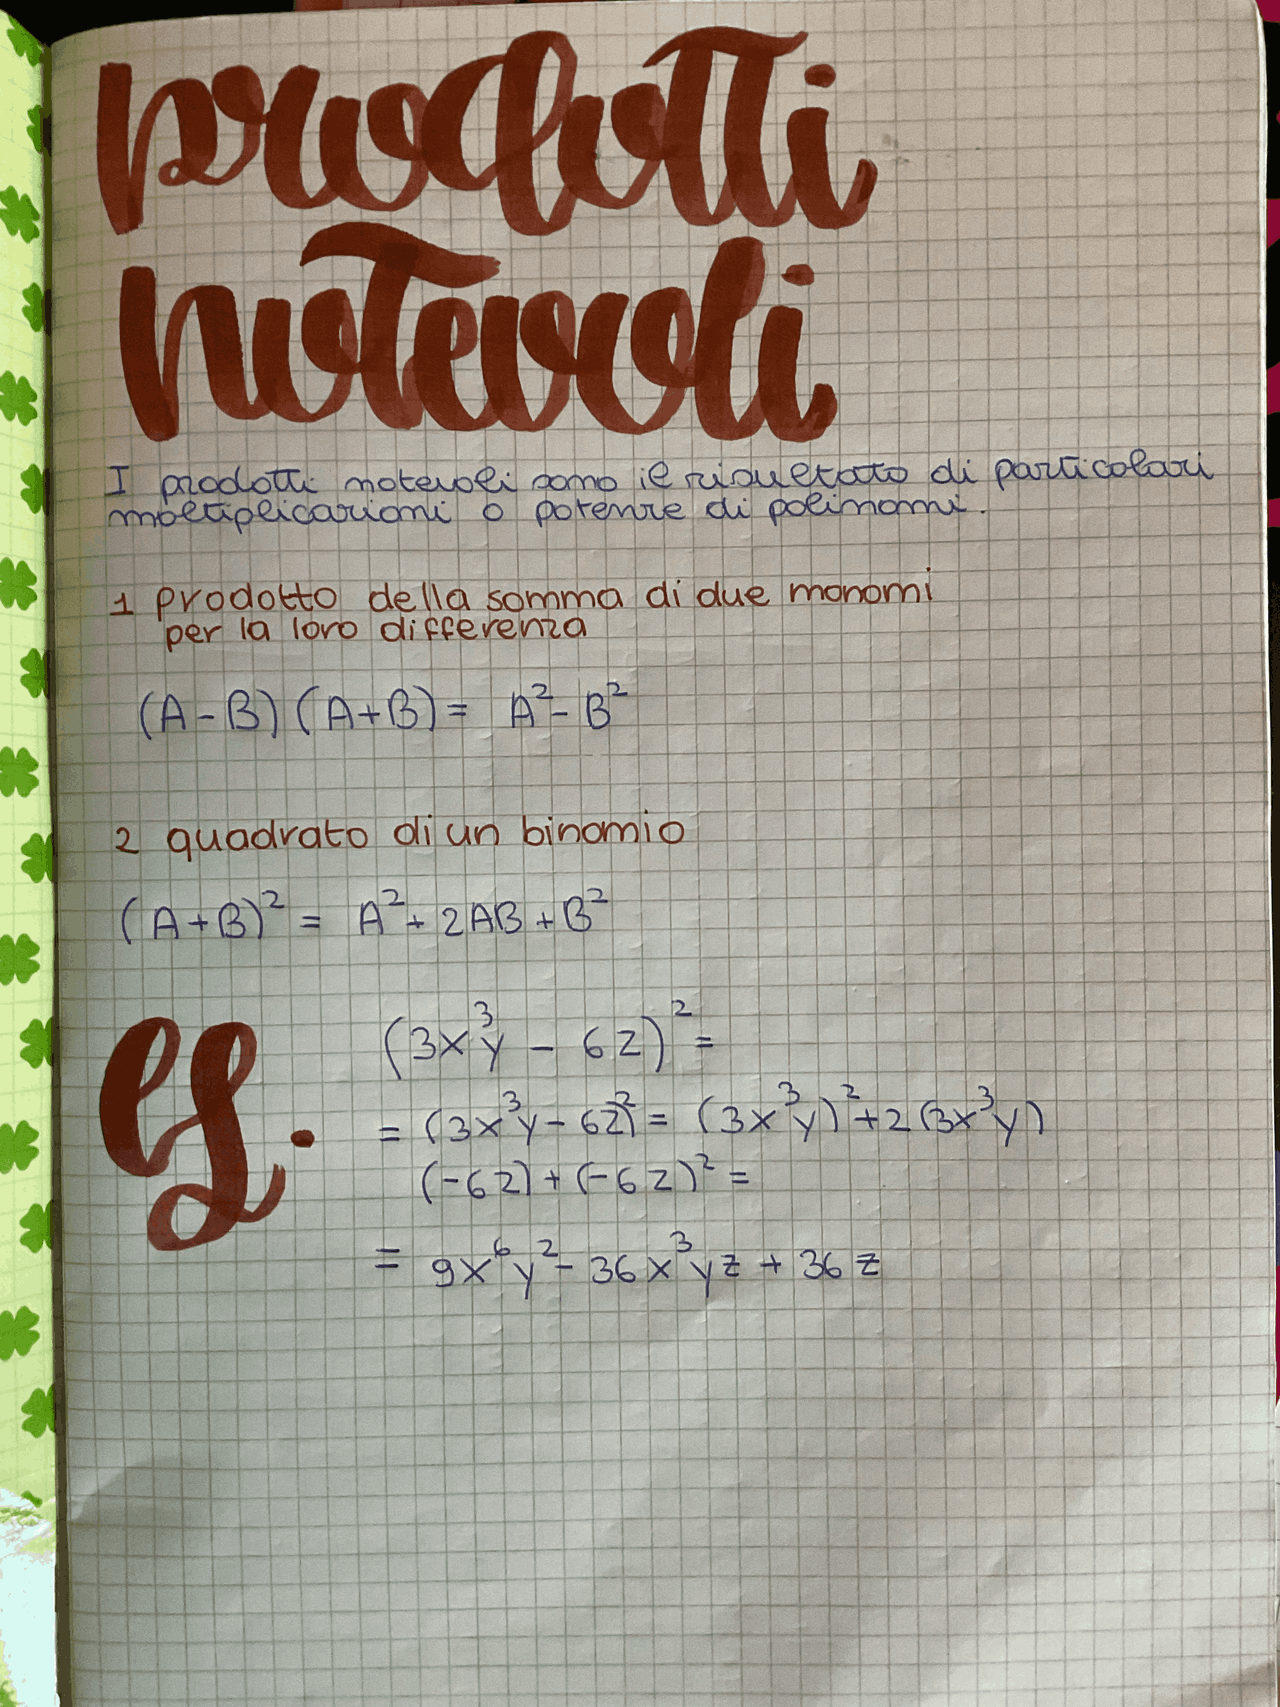 prodotti
notevoli
I prodotti notevoli sono il risultato di particolari
moltiplicazioni o potenze di polinomi.
1 prodotto della somma di due monomi
per la loro differenza
(A-B)(A+B) = A²-B²
2 quadrato di un binomio
(A+B)² = A²+2AB+B²
es.
(3x³y - 6z)² =
= (3x³y-6z)² = (3x³y)²+2(3x³y)
(-6z)+(-6z)² =
= 9x⁶y²-36x³yz+36z